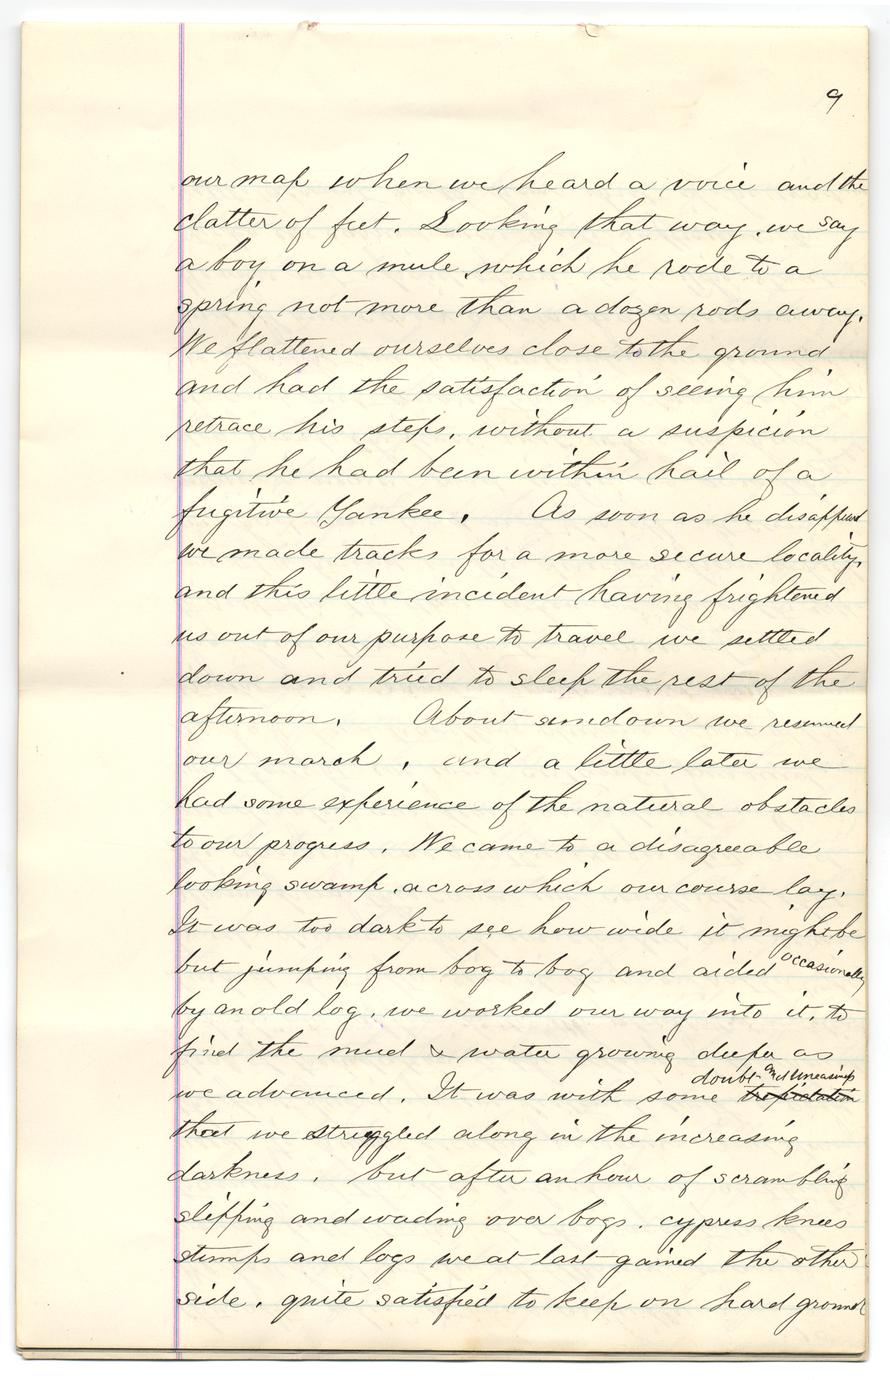 9
our map when we heard a voice and the
clatter of feet. Looking that way, we say
a boy on a mule, which he rode to a
spring not more than a dozen rods away.
We flattened ourselves close to the ground
and had the satisfaction of seeing him
retrace his steps, without a suspicion
that he had been within hail of a
fugitive Yankee. As soon as he disappeared
we made tracks for a more secure locality,
and this little incident having frightened
us out of our purpose to travel we settled
down and tried to sleep the rest of the
afternoon. About sundown we resumed
our march, and a little later we
had some experience of the natural obstacles
to our progress. We came to a disagreeable
looking swamp, across which our course lay.
It was too dark to see how wide it might be
but jumping from bog to bog and aided occasionally
by an old log, we worked our way into it, to
find the mud & water growing deeper as
doubt and uneasiness
we advanced. It was with some trepidation
that we struggled along in the increasing
darkness, but after an hour of scrambling
slipping and wading over bogs, cypress knees
stumps and logs we at last gained the other
side, quite satisfied to keep on hard ground